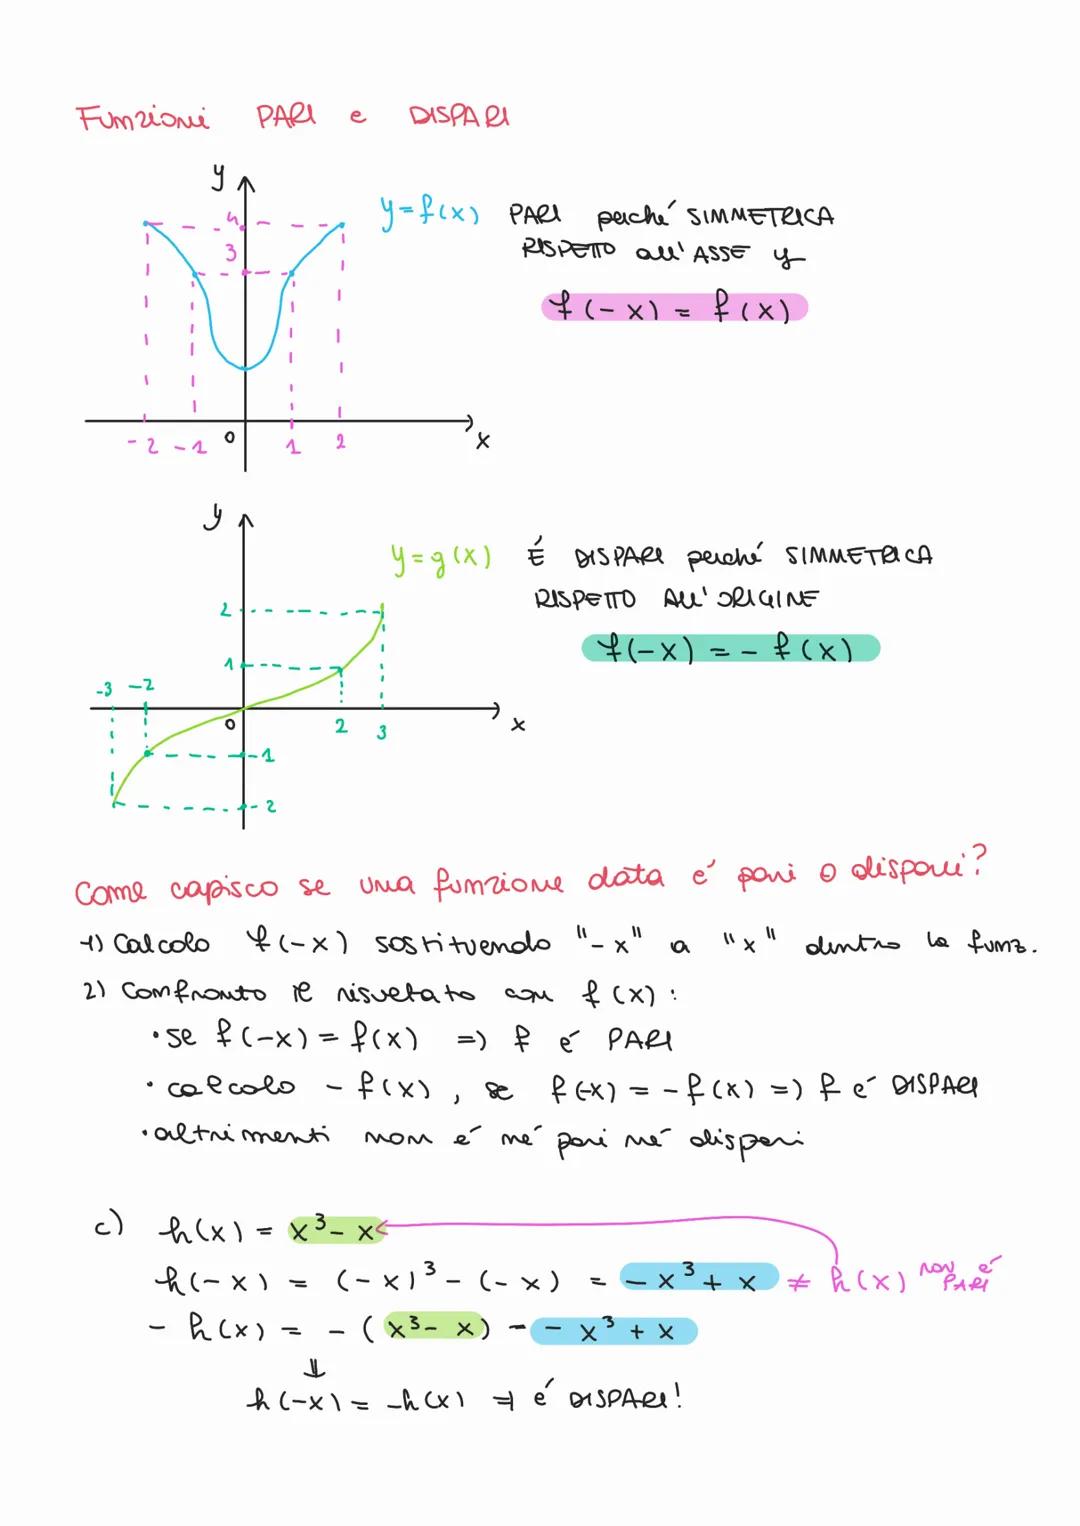 Funzioni PARI e DISPARI
y
4
3
y = f(x) PARI perché SIMMETRICA
RISPETTO all'ASSE y
f(-x) = f(x)
-2 -1 0 1 2 x
y
y = g(x) É DISPARI perché SIMMETRICA
RISPETTO ALL'ORIGINE
2
f(-x) = - f(x)
1
-3 -2
0 2 3 x
-1
-2
Come capisco se una funzione data é pari o dispari?
1) Calcolo f(-x) sostituendo "-x" a "x" dentro la funz.
2) Confronto il risultato con f(x):
• se f(-x) = f(x) => f é PARI
• calcolo - f(x), se f(-x) = - f(x) => f é DISPARI
• altrimenti non é né pari né dispari
c) h(x) = x³ - x
h(-x) = (-x)³ - (-x) = - x³ + x ≠ h(x) non é PARI
- h(x) = - (x³ - x) = - x³ + x
⇓
h(-x) = -h(x) => é DISPARI!